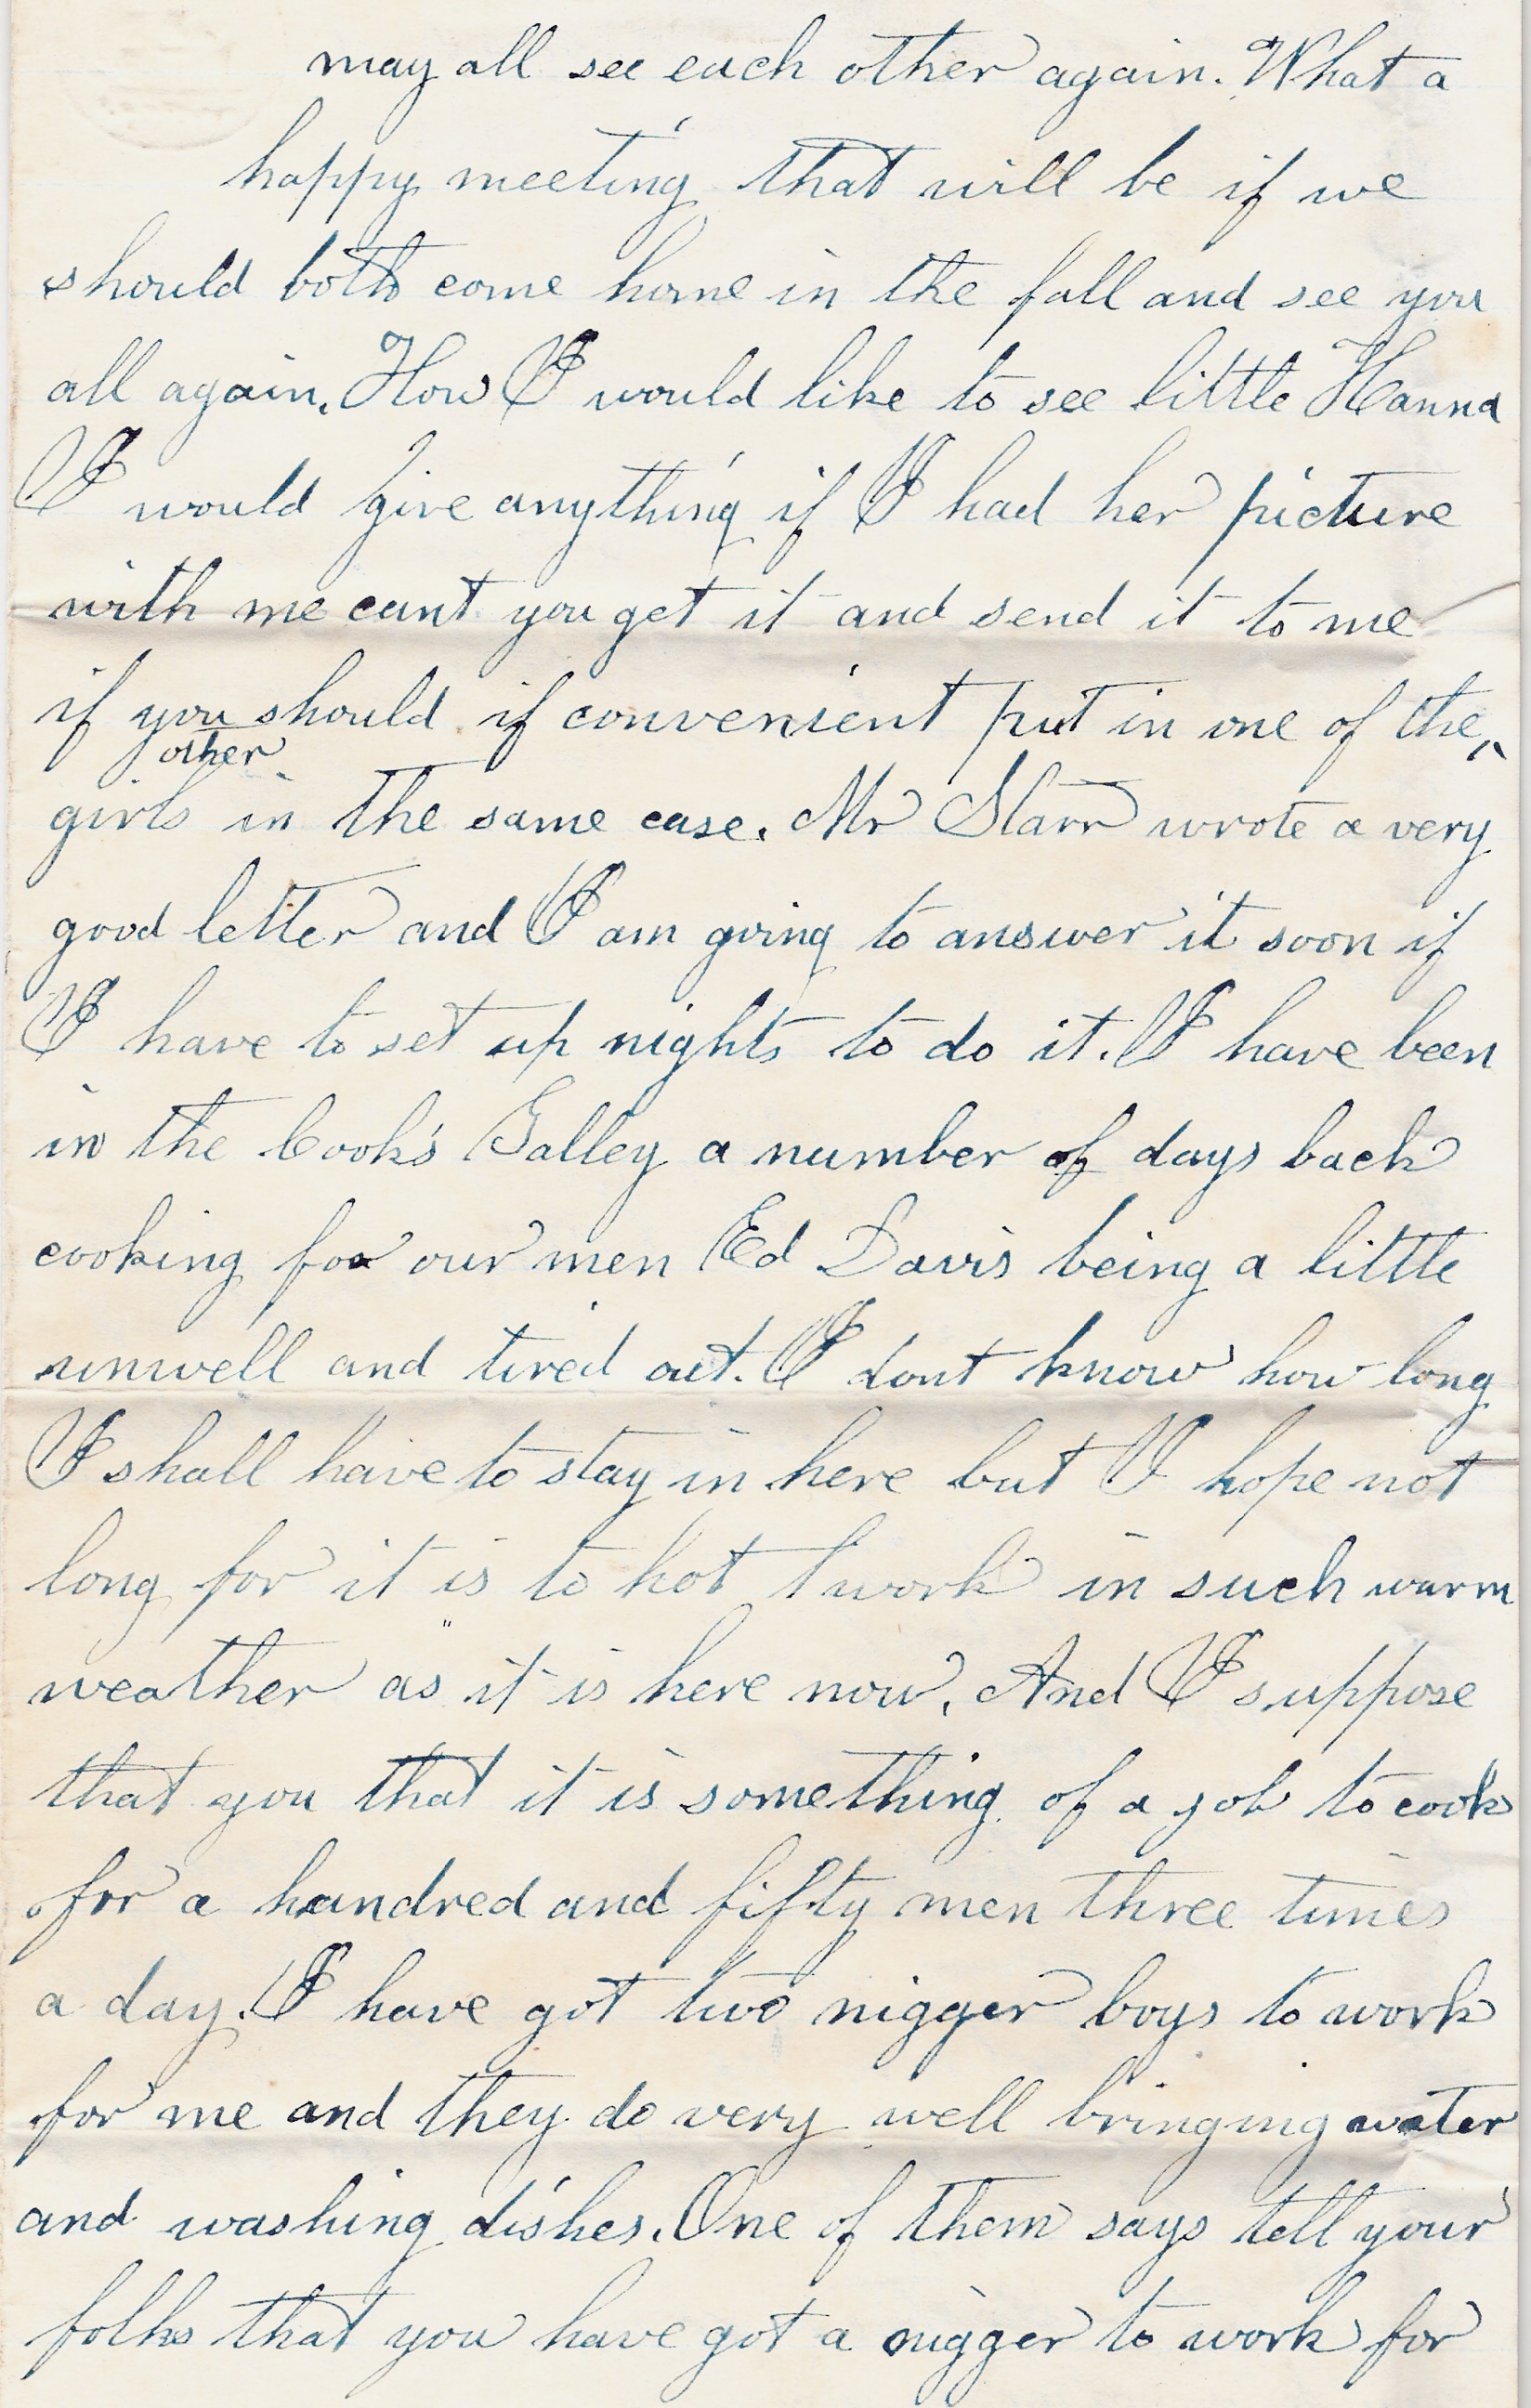 may all see each other again. What a
happy meeting that will be if we
should both come home in the fall and see you
all again. How I would like to see little Hanna
I would give anything if I had her picture
with me cant you get it and send it to me
if you should if convenient put in one of the ^
other
girls in the same case. Mr Starr wrote a very
good letter and I am going to answer it soon if
I have to set up nights to do it. I have been
in the Cook's Galley a number of days back
cooking for our men Ed Davis being a little
unwell and tired out. I dont know how long
I shall have to stay in here but I hope not
long for it is to hot t work in such warm
weather as it is here now. And I suppose
that you that it is something of a job to cook
for a hundred and fifty men three times
a day. I have got two nigger boys to work
for me and they do very well bringing water
and washing dishes. One of them says tell your
folks that you have got a nigger to work for